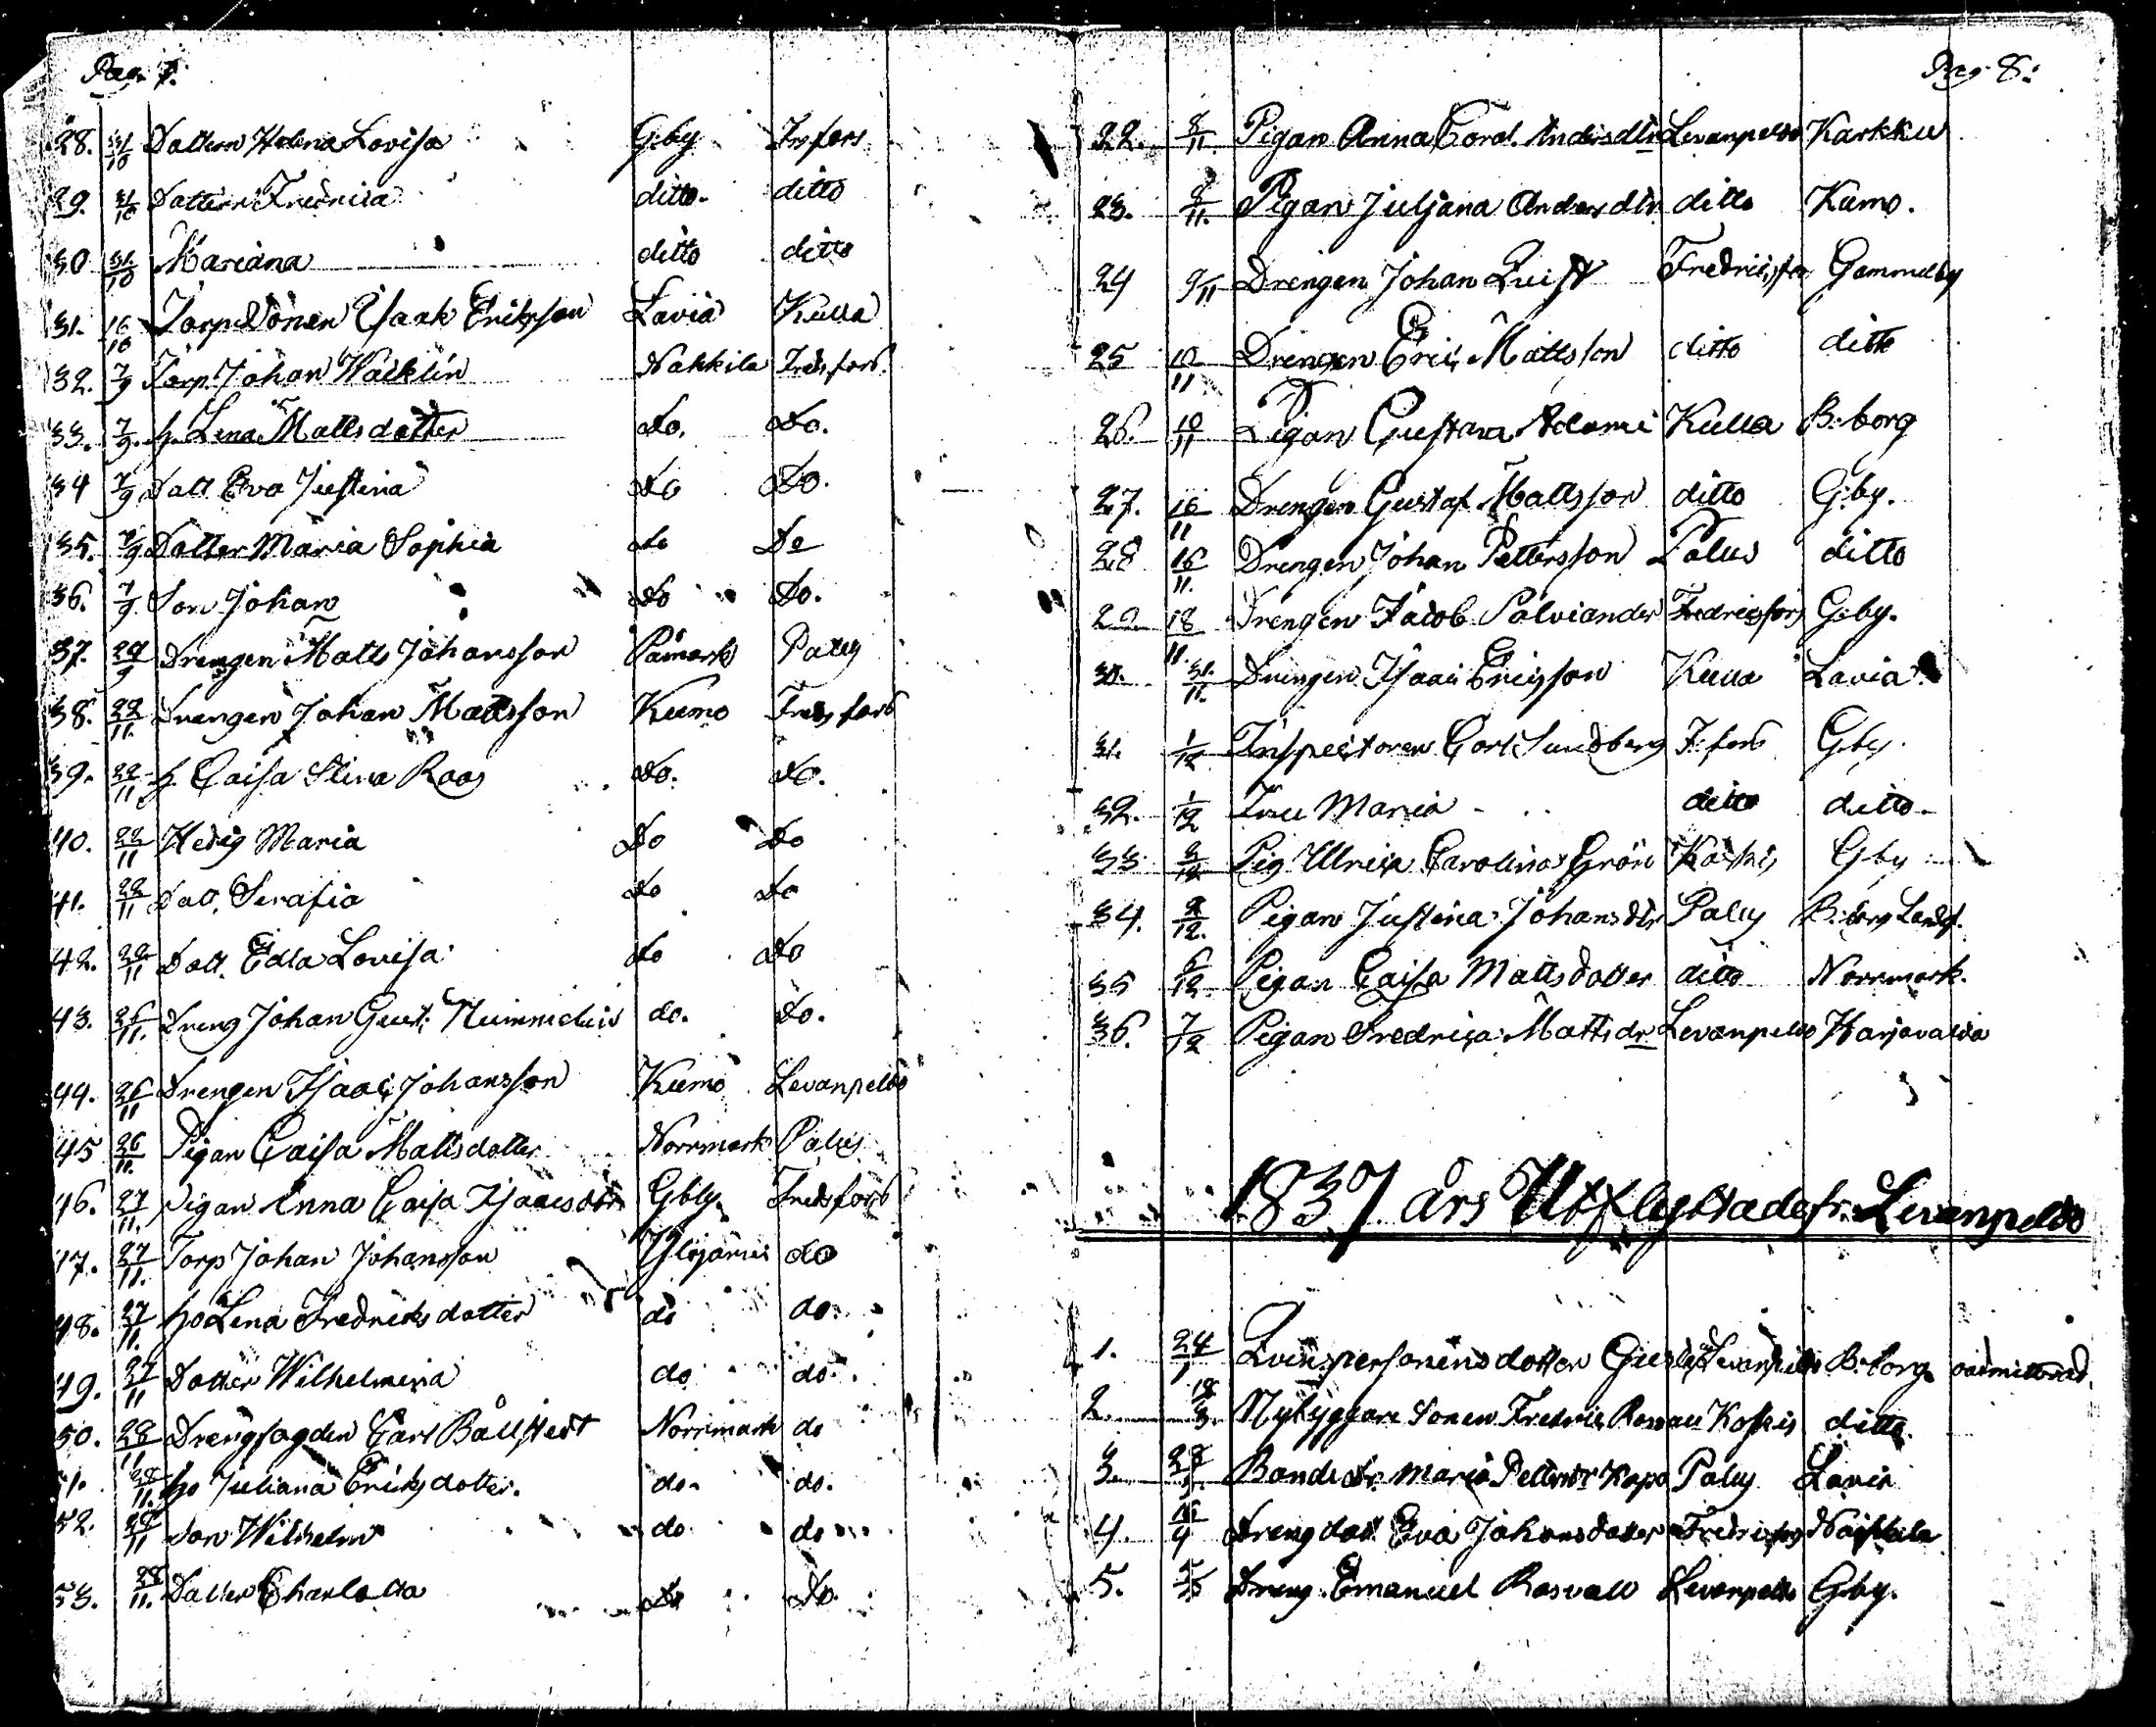 Pag. 7.
28. 31/10 Dottern Helena Lovisa G:by Fr:fors
29. 31/10 Dottern Fredrica ditto. ditto
30 31/10 Mariana ditto ditto
31. 16/10 Torp Sonen Isaak Eriksson Lavia Kulla
32. 7/9 Torp. Johan Wacklin Nakkila Fredsfors
33. 7/9. h. Lena Mattsdotter Do. Do.
34 7/9 Dott Eva Justina Do Do.
35. 7/9 Dotter Maria Sophia do Do
36. 7/9 Son Johan Do Do.
37. 29/9 Drengen Matts Johansson Påmark Palus
38. 22/11. Drengen Johan Mattsson Kumo Fredsfors
39. 22/11 h. Caisa Stina Roos Do. Do.
40. 22/11 Hedvig Maria Do Do
41. 22/11 Dott. Serafia Do Do
42. 22/11 Dott. Edla Lovisa Do Do
43. 26/11. Dreng Johan Gust. do. Do.
44. 26/11 Drengen Isaac Johansson Kumo Levanpeldo
45 26/11. Pigan Caisa Mattsdotter Norrmark Palus
46. 27/11. Pigan Anna Caisa Isaacsdtr Gby. Fredsfors
47. 27/11. Torp Johan Johansson do
48. 27/11. ho Lena Fredriksdotter do do.
49. 27/11 Dotter Wilhelmina do do.
50. 28/11 Drengsogden Carl Bållstedt Norrmark do
51. 28/11. ho Juliana Eriksdotter. do. do.
52. 28/11 Son Wilhelm do do
53. 28/11. Dotter Charlotta Do Do.
Pag. 8.
22. 8/11. Pigan Anna Carol. Andersdtr Levanpeldo Karkku
23. 8/11. Pigan Juljana Andersdtr ditto Kumo.
24 9/11 Drengen Johan Quist Fredricsfors Gammelby
25 10/11 Drengen Eric Mattsson ditto ditto
26. 10/11 Pigan Gustava Adami Kulla B:borg
27. 16/11 Drengen Gustaf Mattsson ditto G:by.
28 16/11. Drengen Johan Pettersson Palus ditto
29 18/11. Drengen Jacob Palviander Fredricsfors G:by.
30. 31./11. Drengen Isaac Ericsson Kulla Lavia
31. 1/12 Inspectoren Carl Sundberg F:fors G:by.
32. 1/12 Fru Maria ditto ditto
33 2/12 Pig Ulrica Carolina Grön Koskis Gby
34. 2/12. Pigan Justina Johansdtr Palus B:borg Landsf.
35 6/12 Pigan Caisa Mattsdotter ditto Norrmark.
36. 7/12 Pigan Fredrica Mattsdr Levanpeldo Harjavalda
1837 års Utflyttade fr. Levanpeldo
1. 24/1 dotter Levanpeldo B:borg
2. 18/3. Nybyggare Sonen Fredric Koskis ditto.
3. 28/3. Bonde dr. Maria Palus Lavia
4. 16/4 Dreng dott Eva Johansdotter Fredricsfors Nakkila
5. Dreng Emanuel Rosvall Levanpeldo G:by.